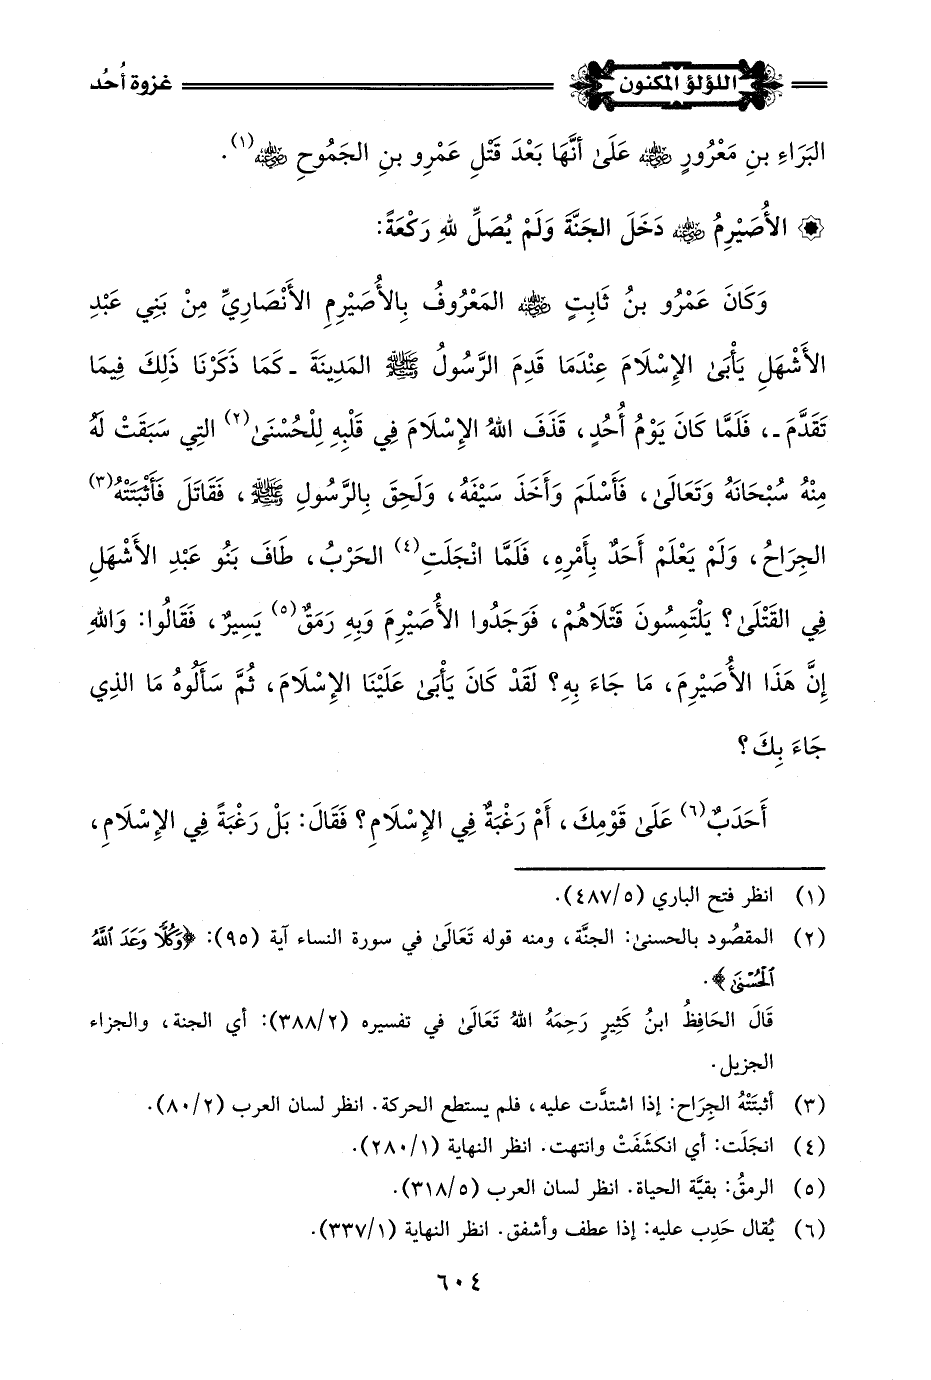 اللؤلؤ المكنون غزوة أُحُد
البَرَاءِ بنِ مَعْرُورٍ ﵁ عَلَىٰ أنَّهَا بَعْدَ قَتْلِ عَمْرِو بنِ الجَمُوحِ ﵁(١).
۞ الأُصَيْرِمُ ﵁ دَخَلَ الجَنَّةَ وَلَمْ يُصَلِّ للهِ رَكْعَةً:
وَكَانَ عَمْرُو بنُ ثَابِتٍ ﵁ المَعْرُوفُ بِالأُصَيْرِمِ الأَنْصَارِيِّ مِنْ بَنِي عَبْدِ
الأَشْهَلِ يَأْبَىٰ الإِسْلَامَ عِنْدَمَا قَدِمَ الرَّسُولُ ﷺ المَدِينَةَ ـ كَمَا ذَكَرْنَا ذَلِكَ فِيمَا
تَقَدَّمَ ـ، فَلَمَّا كَانَ يَوْمُ أُحُدٍ، قَذَفَ اللهُ الإِسْلَامَ فِي قَلْبِهِ لِلْحُسْنَىٰ(٢) التِي سَبَقَتْ لَهُ
مِنْهُ سُبْحَانَهُ وَتَعَالَىٰ، فَأَسْلَمَ وَأَخَذَ سَيْفَهُ، وَلَحِقَ بِالرَّسُولِ ﷺ، فَقَاتَلَ فَأَثْبَتَتْهُ(٣)
الجِرَاحُ، وَلَمْ يَعْلَمْ أَحَدٌ بِأَمْرِهِ، فَلَمَّا انْجَلَتِ(٤) الحَرْبُ، طَافَ بَنُو عَبْدِ الأَشْهَلِ
فِي القَتْلَىٰ؟ يَلْتَمِسُونَ قَتْلَاهُمْ، فَوَجَدُوا الأُصَيْرِمَ وَبِهِ رَمَقٌ(٥) يَسِيرٌ، فَقَالُوا: وَاللهِ
إِنَّ هَذَا الأُصَيْرِمَ، مَا جَاءَ بِهِ؟ لَقَدْ كَانَ يَأْبَىٰ عَلَيْنَا الإِسْلَامَ، ثُمَّ سَأَلُوهُ مَا الذِي
جَاءَ بِكَ؟
أَحَدَبٌ(٦) عَلَىٰ قَوْمِكَ، أَمْ رَغْبَةٌ فِي الإِسْلَامِ؟ فَقَالَ: بَلْ رَغْبَةً فِي الإِسْلَامِ،
(١) انظر فتح الباري (٤٨٧/٥).
(٢) المقصُود بالحسنىٰ: الجنَّة، ومنه قوله تَعَالَىٰ في سورة النساء آية (٩٥): ﴿وَكُلًّا وَعَدَ ٱللَّهُ
ٱلْحُسْنَىٰ﴾.
قَالَ الحَافِظُ ابنُ كَثِيرٍ رَحِمَهُ اللهُ تَعَالَىٰ في تفسيره (٣٨٨/٢): أي الجنة، والجزاء
الجزيل.
(٣) أثبتَتْهُ الجِراح: إذا اشتدَّت عليه، فلم يستطع الحركة. انظر لسان العرب (٨٠/٢).
(٤) انجَلَت: أي انكشَفَتْ وانتهت. انظر النهاية (٢٨٠/١).
(٥) الرمقُ: بقيَّة الحياة. انظر لسان العرب (٣١٨/٥).
(٦) يُقال حَدِب عليه: إذا عطف وأشفق. انظر النهاية (٣٣٧/١).
٦٠٤